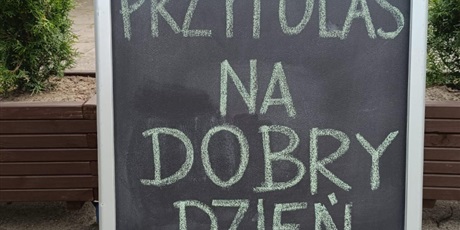 PRZYTULAS
NA
DOBRY
DZIEŃ